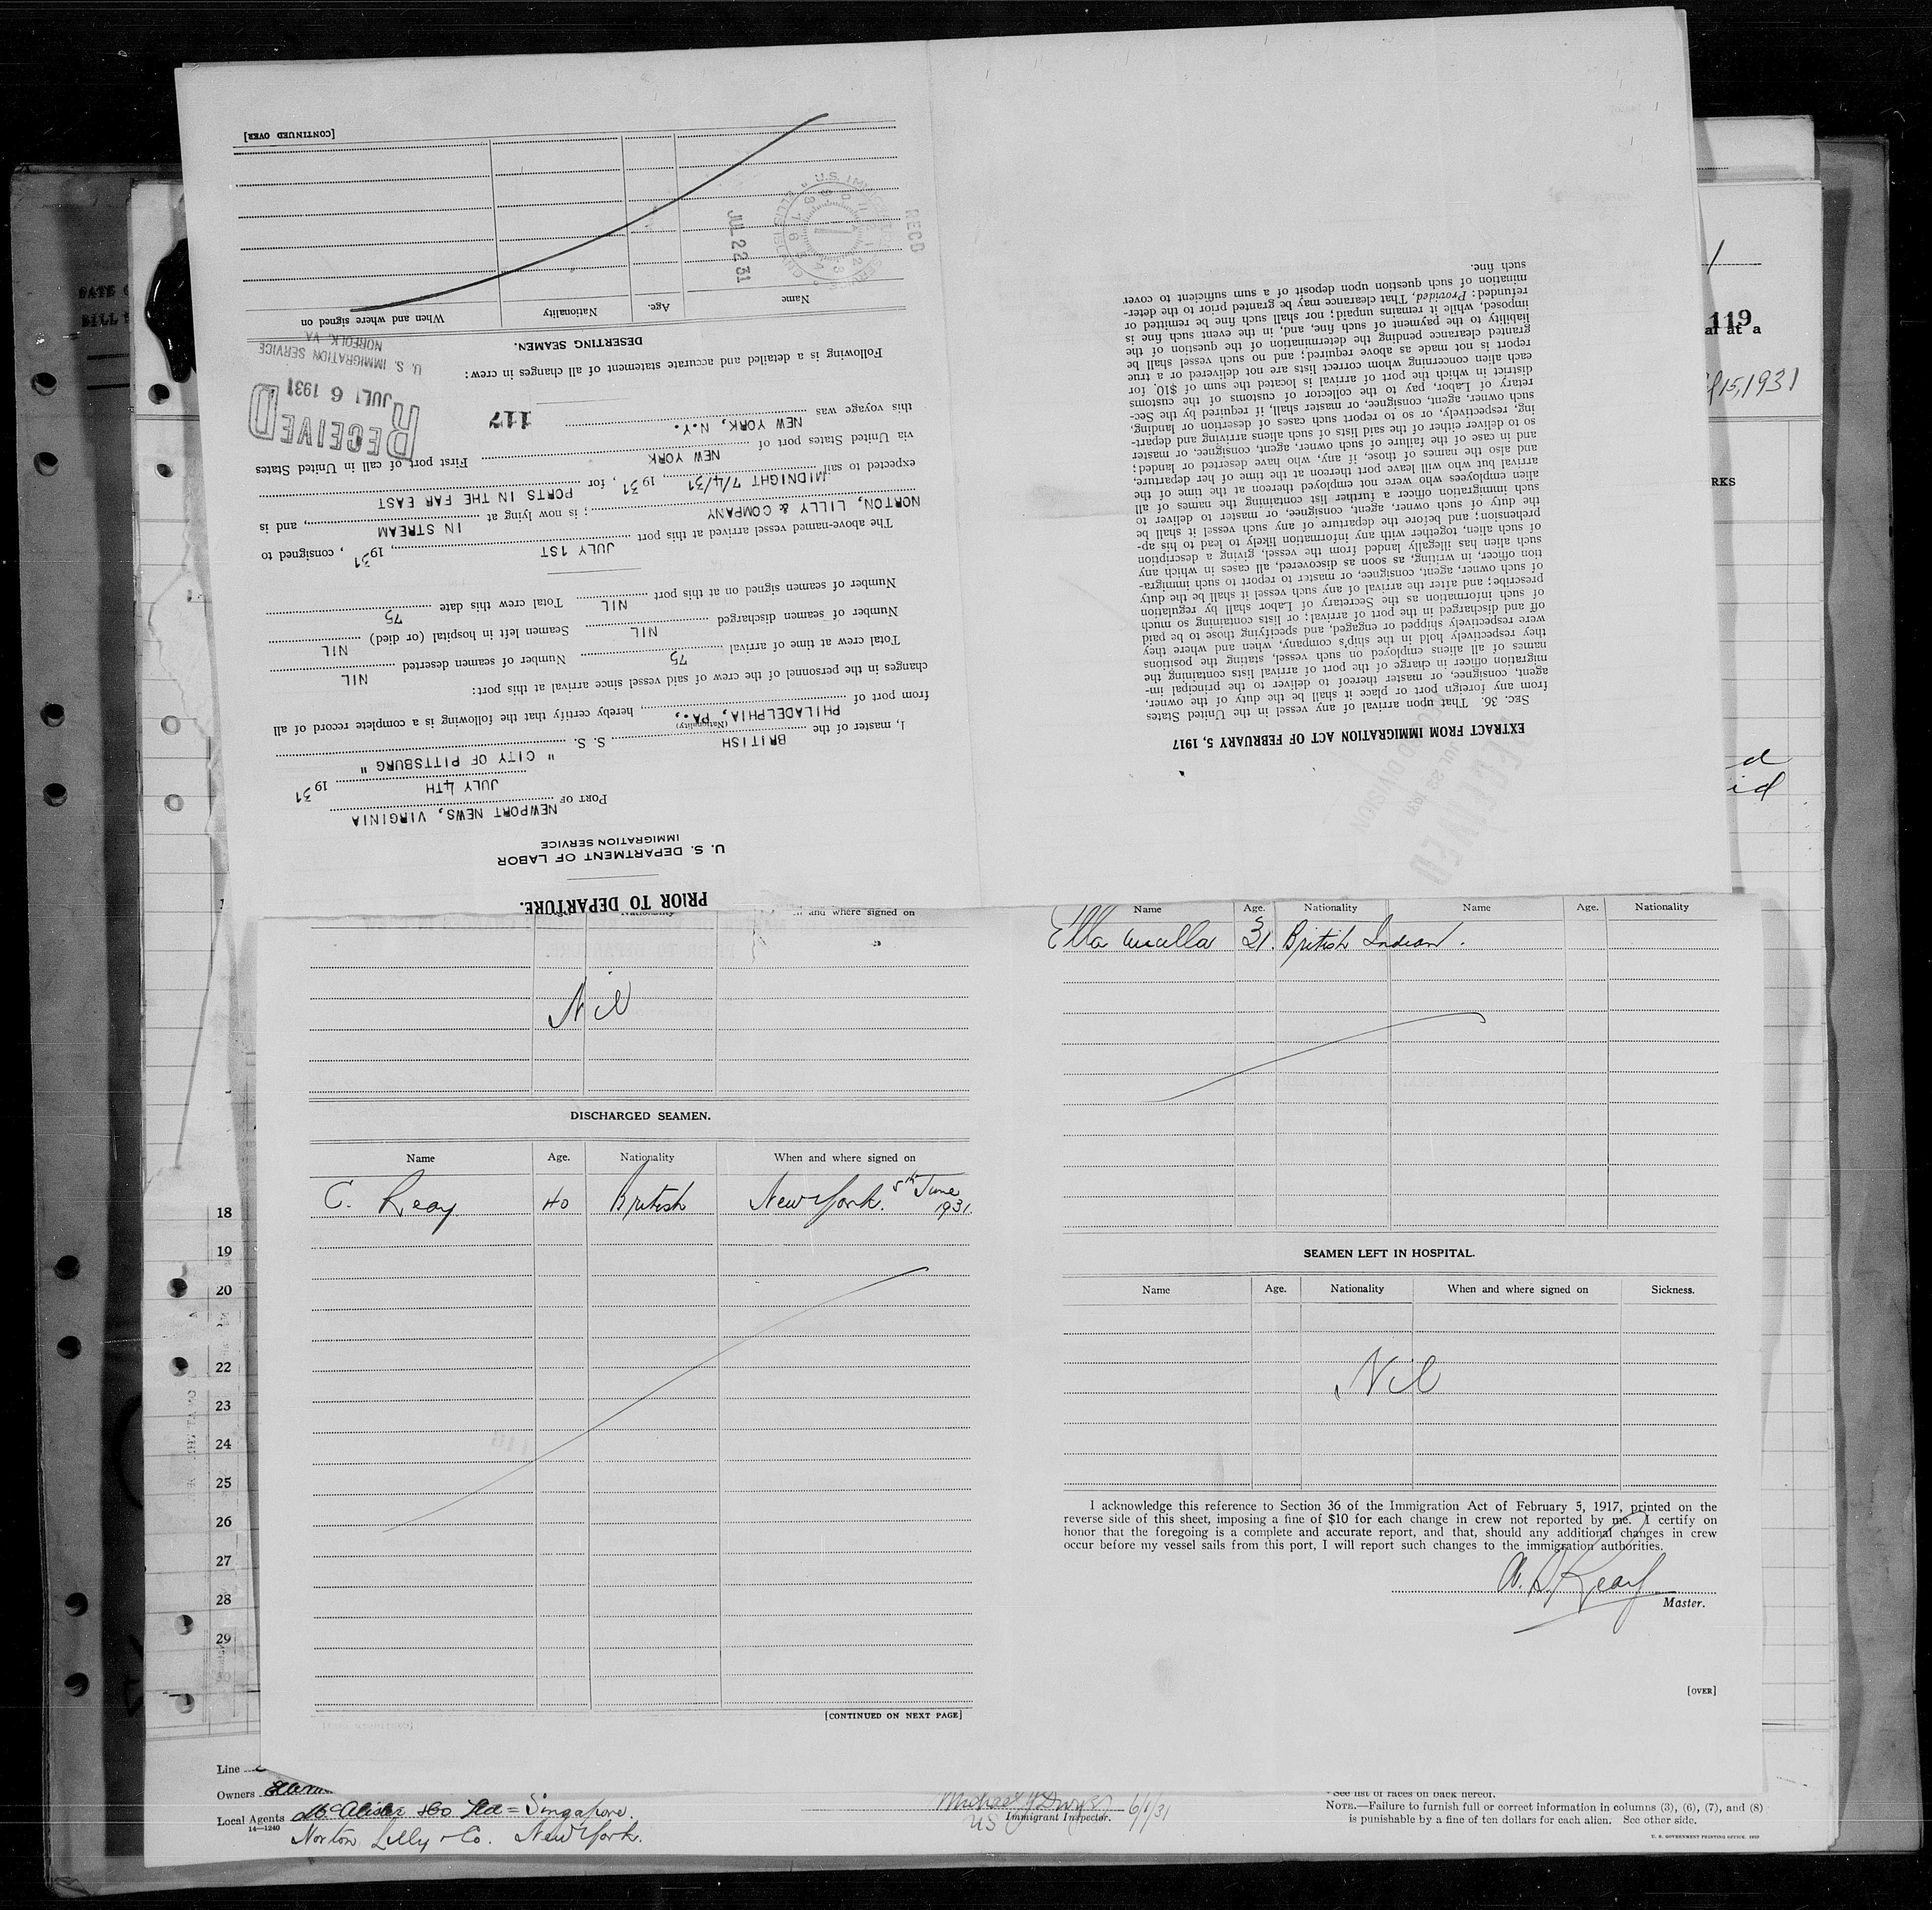 PRIOR TO DEPARTURE.
U. S. DEPARTMENT OF LABOR
IMMIGRATION SERVICE
PORT OF NEWPORT NEWS, VIRGINIA
JULY 4TH 1931
I, master of the BRITISH S. S. " CITY OF PITTSBURG "
(Nationality)
from port of PHILADELPHIA, PA., hereby certify that the following is a complete record of all
changes in the personnel of the crew of said vessel since arrival at this port:
Total crew at time of arrival 75 Number of seamen deserted NIL
Number of seamen discharged NIL Seamen left in hospital (or died) NIL
Number of seamen signed on at this port NIL Total crew this date 75
The above-named vessel arrived at this port JULY 1ST, 1931, consigned to
NORTON, LILLY & COMPANY; is now lying at IN STREAM, and is
expected to sail MIDNIGHT 7/4/31, 1931, for PORTS IN THE FAR EAST
via United States port of NEW YORK First port of call in United States
this voyage was NEW YORK, N.Y.
117
RECEIVED
JUL 6 1931
U. S. IMMIGRATION SERVICE
NORFOLK VA
Following is a detailed and accurate statement of all changes in crew:
DESERTING SEAMEN.
Name Age. Nationality When and where signed on
REC'D
JUL 2 2 31
[CONTINUED OVER]
EXTRACT FROM IMMIGRATION ACT OF FEBRUARY 5, 1917
SEC. 36. That upon arrival of any vessel in the United States
from any foreign port or place it shall be the duty of the owner,
agent, consignee, or master thereof to deliver to the principal im-
migration officer in charge of the port of arrival lists containing the
names of all aliens employed on such vessel, stating the positions
they respectively hold in the ship's company, when and where they
were respectively shipped or engaged, and specifying those to be paid
off and discharged in the port of arrival; or lists containing so much
of such information as the Secretary of Labor shall by regulation
prescribe; and after the arrival of any such vessel it shall be the duty
of such owner, agent, consignee, or master to report to such immigra-
tion officer, in writing, as soon as discovered, all cases in which any
such alien has illegally landed from the vessel, giving a description
of such alien, together with any information likely to lead to his ap-
prehension; and before the departure of any such vessel it shall be
the duty of such owner, agent, consignee, or master to deliver to
such immigration officer a further list containing the names of all
alien employees who were not employed thereon at the time of the
arrival but who will leave port thereon at the time of her departure,
and also the names of those, if any, who have deserted or landed;
and in case of the failure of such owner, agent, consignee, or master
so to deliver either of the said lists of such aliens arriving and depart-
ing, respectively, or so to report such cases of desertion or landing,
such owner, agent, consignee, or master shall, if required by the Sec-
retary of Labor, pay to the collector of customs of the customs
district in which the port of arrival is located the sum of $10. for
each alien concerning whom correct lists are not delivered or a true
report is not made as above required; and no such vessel shall be
granted clearance pending the determination of the question of the
liability to the payment of such fine, and, in the event such fine is
imposed, while it remains unpaid; nor shall such fine be remitted or
refunded: Provided, That clearance may be granted prior to the deter-
mination of such question upon deposit of a sum sufficient to cover
such fine.
RECEIVED
JUL 23 1931
119
al at a
15, 1931
RKS
Nationality and where signed on
Nil
DISCHARGED SEAMEN.
Name Age. Nationality When and where signed on
C. Reay 40 British New York. 5th June
1931.
[CONTINUED ON NEXT PAGE]
Name Age. Nationality Name Age. Nationality
31. British Indian.
SEAMEN LEFT IN HOSPITAL.
Name Age. Nationality When and where signed on Sickness.
Nil
I acknowledge this reference to Section 36 of the Immigration Act of February 5, 1917, printed on the
reverse side of this sheet, imposing a fine of $10 for each change in crew not reported by me. I certify on
honor that the foregoing is a complete and accurate report, and that, should any additional changes in crew
occur before my vessel sails from this port, I will report such changes to the immigration authorities.
Master.
[OVER]
18
19
20
22
23
24
25
26
27
28
29
Line
Owners
Local Agents McAlister & Co Ltd = Singapore.
14—1240
Norton Lilly & Co. New York.
Michael J Dwyer 6/1/31
US Immigrant Inspector.
* See list of races on back hereof.
NOTE.—Failure to furnish full or correct information in columns (3), (6), (7), and (8)
is punishable by a fine of ten dollars for each alien. See other side.
U. S. GOVERNMENT PRINTING OFFICE: 1929